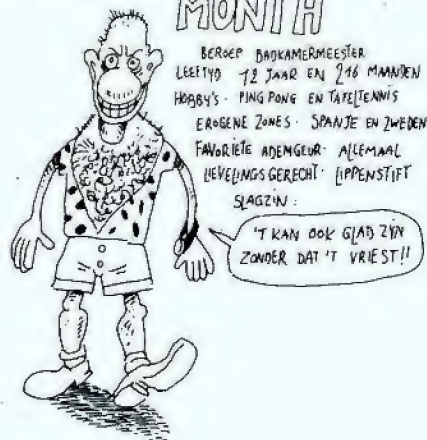 MONTH
BEROEP BADKAMERMEESTER
LEEFTYD 12 JAAR EN 216 MAANDEN
HOBBY'S · PING PONG EN TAFELTENNIS
EROGENE ZONES · SPANJE EN ZWEDEN
FAVORIETE ADEMGEUR · ALLEMAAL
LIEVELINGSGERECHT · LIPPENSTIFT
SLAGZIN :
'T KAN OOK GLAD ZYN
ZONDER DAT 'T VRIEST!!